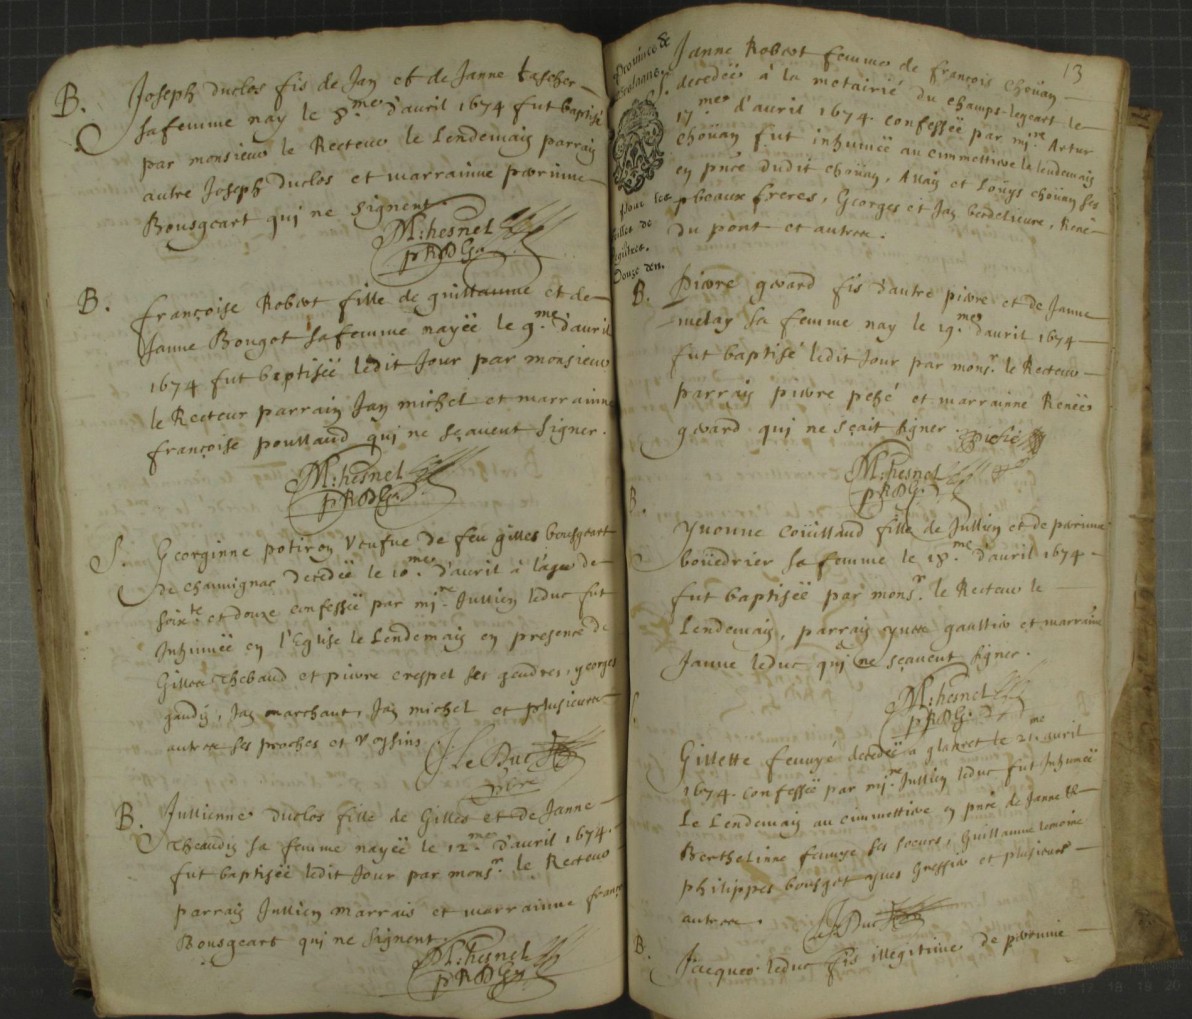 B. Joseph Duclos fis de Jan et de Janne
sa femme nay le 8.me d'avril 1674 fut baptisé
par monsieur le Recteur le Lendemain parrain
autre Joseph Duclos et marrainne perrinne
Bousgeart qui ne signent.
M: hesnel
p R D G
B. françoise Robert fille de guillaume et de
Janne Bougot sa femme nayëë le 9.me d'avril
1674 fut baptiséë ledit Jour par monsieur
le Recteur parrain Jan michel et marrainne
françoise pouллaud qui ne sçavent signer.
M: hesnel
p R D G
S. Georginne potiron veufve de feu gilles bousgeart
de chauvignac decedéë le 10.me d'avril à l'age de
soixte et douze confesséë par mire Jullien leduc fut
Inhuméë en l'Eglise le Lendemain en presence de
Gilles Thebaud et pierre crespel ses gendres, georges
gaudin, Jan marchant, Jan michel et plusieurs
autres ses proches et voysins
J. Le Duc
pbre
B. Jullienne Duclos fille de Gilles et de Janne
Theaudin sa femme nayëë le 12.me d'avril 1674.
fut baptiséë ledit Jour par monsr. le Recteur
parrain Jullien Marrais et marrainne
Bousgeart qui ne signent
M: hesnel
p R D G
13
Province de
Bretagne
pour les
filles de
Douze den.
Janne Robert femme de françois chouan
decedéë à la metairié du champs-legeart le
17.me d'avril 1674 confesséë par mire Artur
choüan fut inhuméë au cimmettiere le lendemain
en pnce dudit choüan, Allain et Loüys choüan ses
beaux freres, Georges et Jan berdelieure, René
du pont et autres.
B. Pierre gerard fis d'autre pierre et de Janne
melay sa femme nay le 19.me d'avril 1674
fut baptisé ledit Jour par monsr. le Recteur
parrain pierre peşé et marrainne Renéë
gerard qui ne sçait signer.
M: hesnel
p R D G
B.
Yvonne coüillaud fille de Jullien et de perrinne
boüedrier sa femme le 18.me d'avril 1674
fut baptiséë par monsr. le Recteur le
Lendemain, parrain yves gaultier et marrainne
Janne leduc qui ne sçavent signer.
M: hesnel
p R D G
S.
Gillette fevuyé decedéë a glahret le 21.me avril
1674. confesséë par mire Jullien leduc fut Inhuméë
Le Lendemain au cimmettiere en pnce de Janne et
Berthelinne fevuye ses soeurs, Guillaume
philippes bousgot yves Gressier et plusieurs
autres.
J. Le Duc
B. Jacques leduc fis illegitime de perrinne